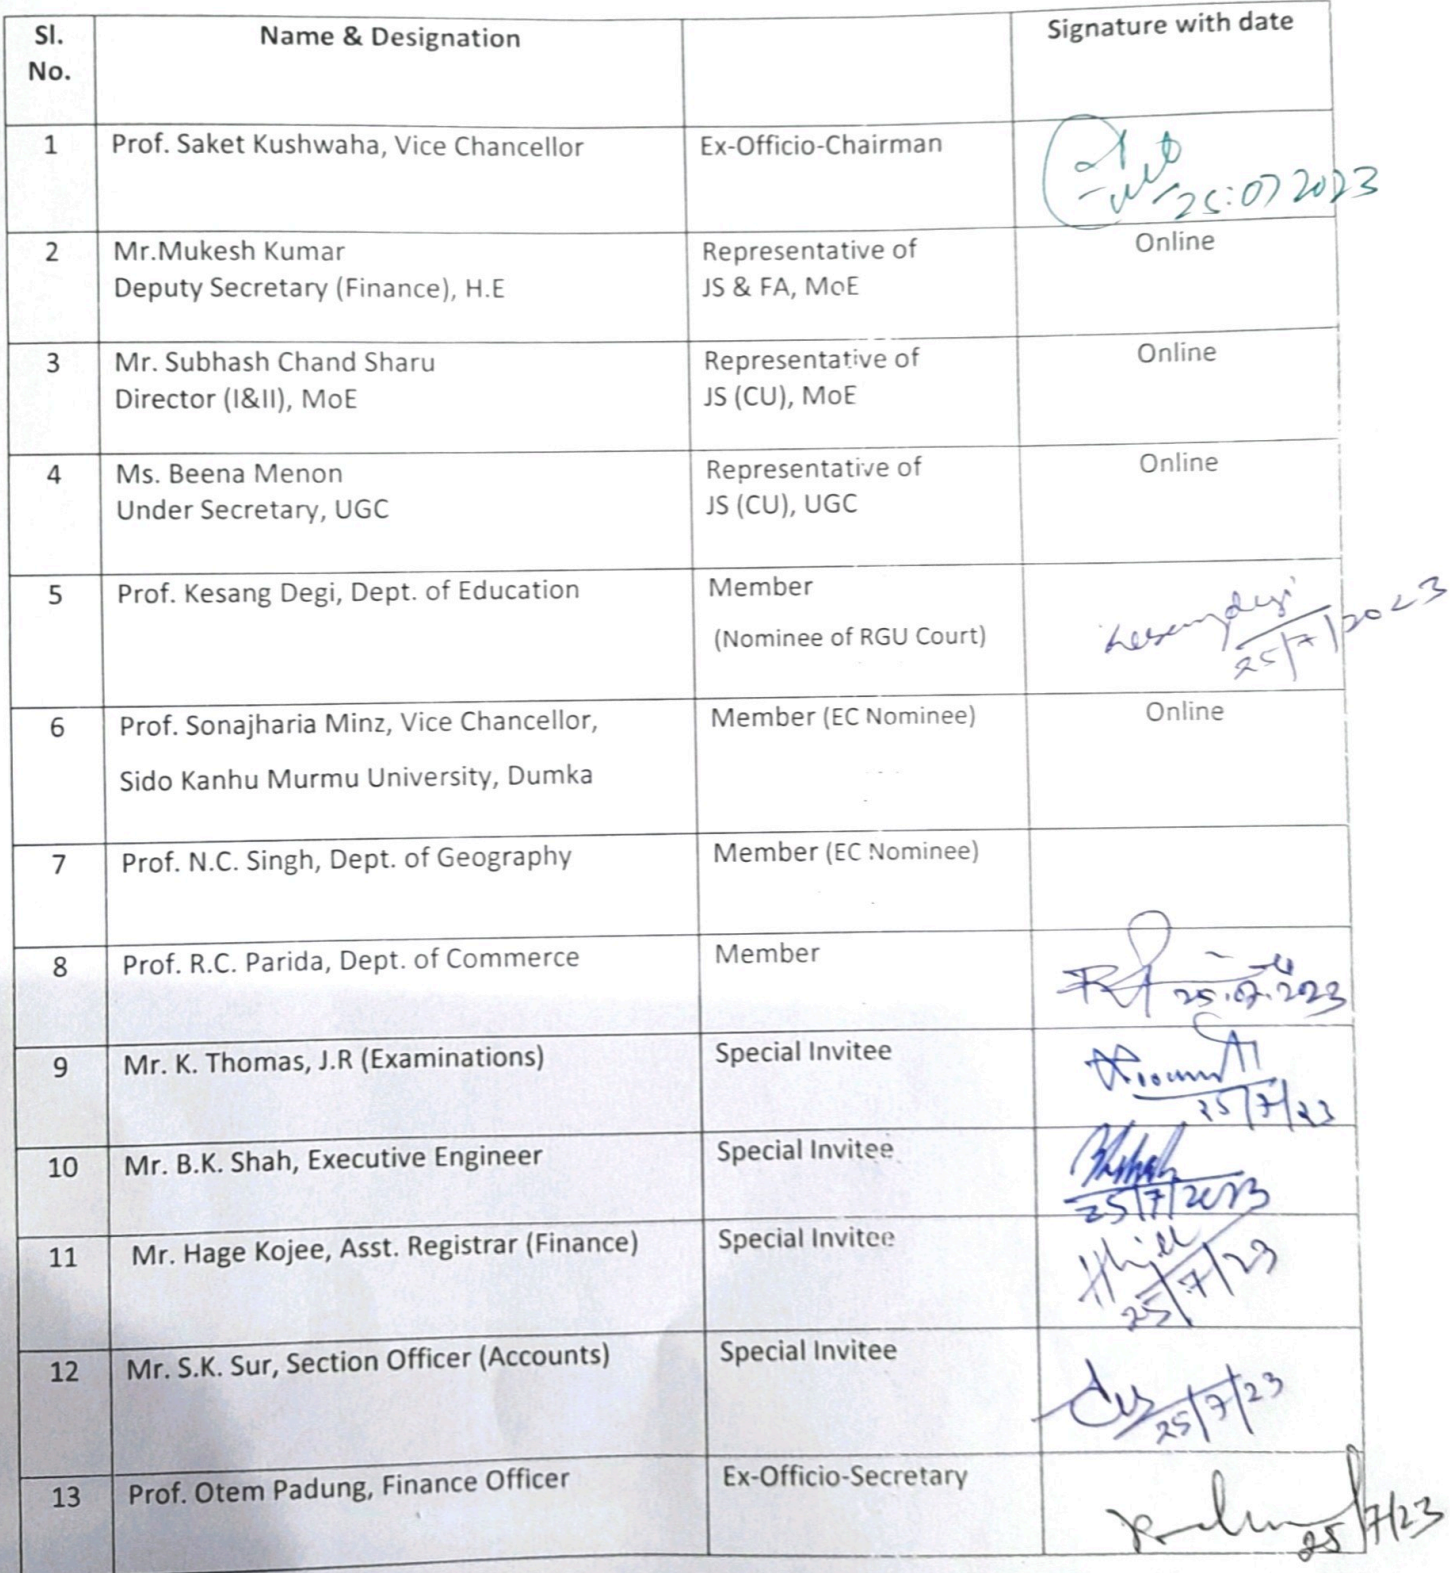 Sl. No.
Name & Designation
Signature with date
1
Prof. Saket Kushwaha, Vice Chancellor
Ex-Officio-Chairman
25:07 2023
2
Mr.Mukesh Kumar
Deputy Secretary (Finance), H.E
Representative of
JS & FA, MoE
Online
3
Mr. Subhash Chand Sharu
Director (I&II), MoE
Representative of
JS (CU), MoE
Online
4
Ms. Beena Menon
Under Secretary, UGC
Representative of
JS (CU), UGC
Online
5
Prof. Kesang Degi, Dept. of Education
Member
(Nominee of RGU Court)
Kesangdegi
25/7/2023
6
Prof. Sonajharia Minz, Vice Chancellor,
Sido Kanhu Murmu University, Dumka
Member (EC Nominee)
Online
7
Prof. N.C. Singh, Dept. of Geography
Member (EC Nominee)
8
Prof. R.C. Parida, Dept. of Commerce
Member
25.07.2023
9
Mr. K. Thomas, J.R (Examinations)
Special Invitee
25/7/23
10
Mr. B.K. Shah, Executive Engineer
Special Invitee
25/7/2023
11
Mr. Hage Kojee, Asst. Registrar (Finance)
Special Invitee
25/7/23
12
Mr. S.K. Sur, Section Officer (Accounts)
Special Invitee
25/7/23
13
Prof. Otem Padung, Finance Officer
Ex-Officio-Secretary
25/7/23